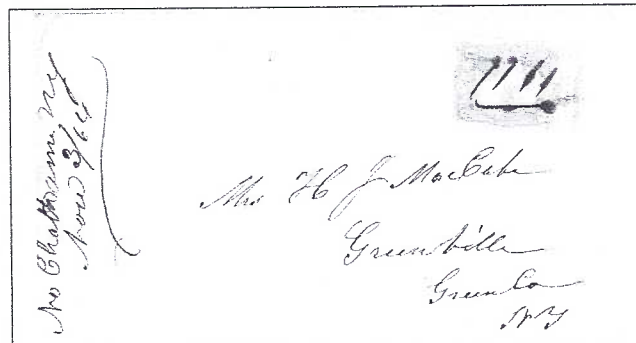 No Chatham NY
Nov 3/64
Mrs H J MacCabe
Greenville
Green Co
NY